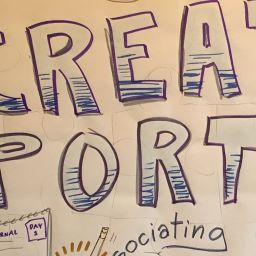 CREAT
PORT
RNAL DAY 5
sociating